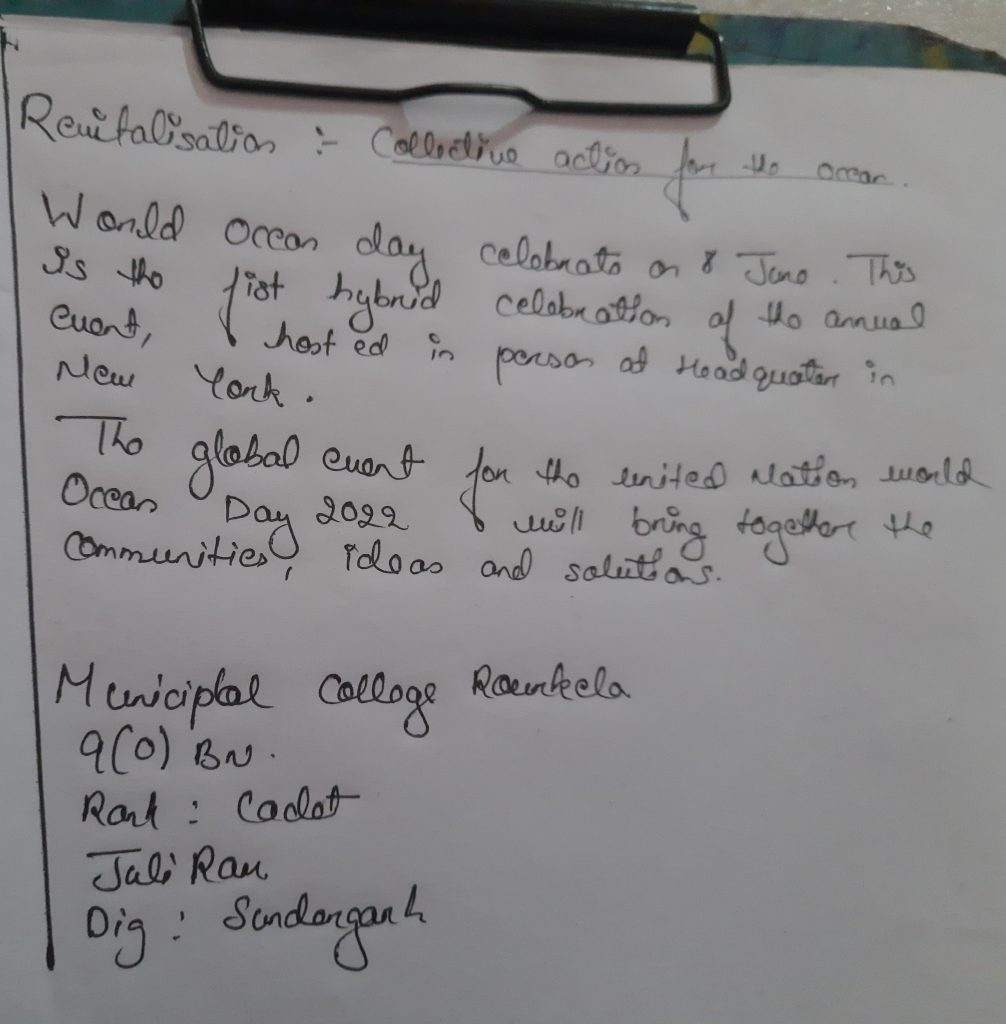 Revitalisation :- Collective action for the ocean.
World Ocean day celebrate on 8 June. This
is the fist hybrid celebration of the annual
event, hosted in person at Headquater in
New York.
The global event for the united Nation world
Ocean Day 2022 will bring together the
Communities, ideas and solutions.
Municiplal College Rourkela
9(O) BN.
Rank : Cadet
Juli Rau
Dig : Sundergarh